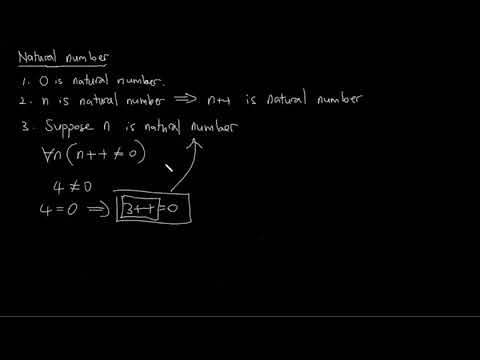 Natural number
1. 0 is natural number.
2. n is natural number ⟹ n++ is natural number
3. Suppose n is natural number
∀n(n++ ≠ 0)
4 ≠ 0
4=0 ⟹ 3++=0